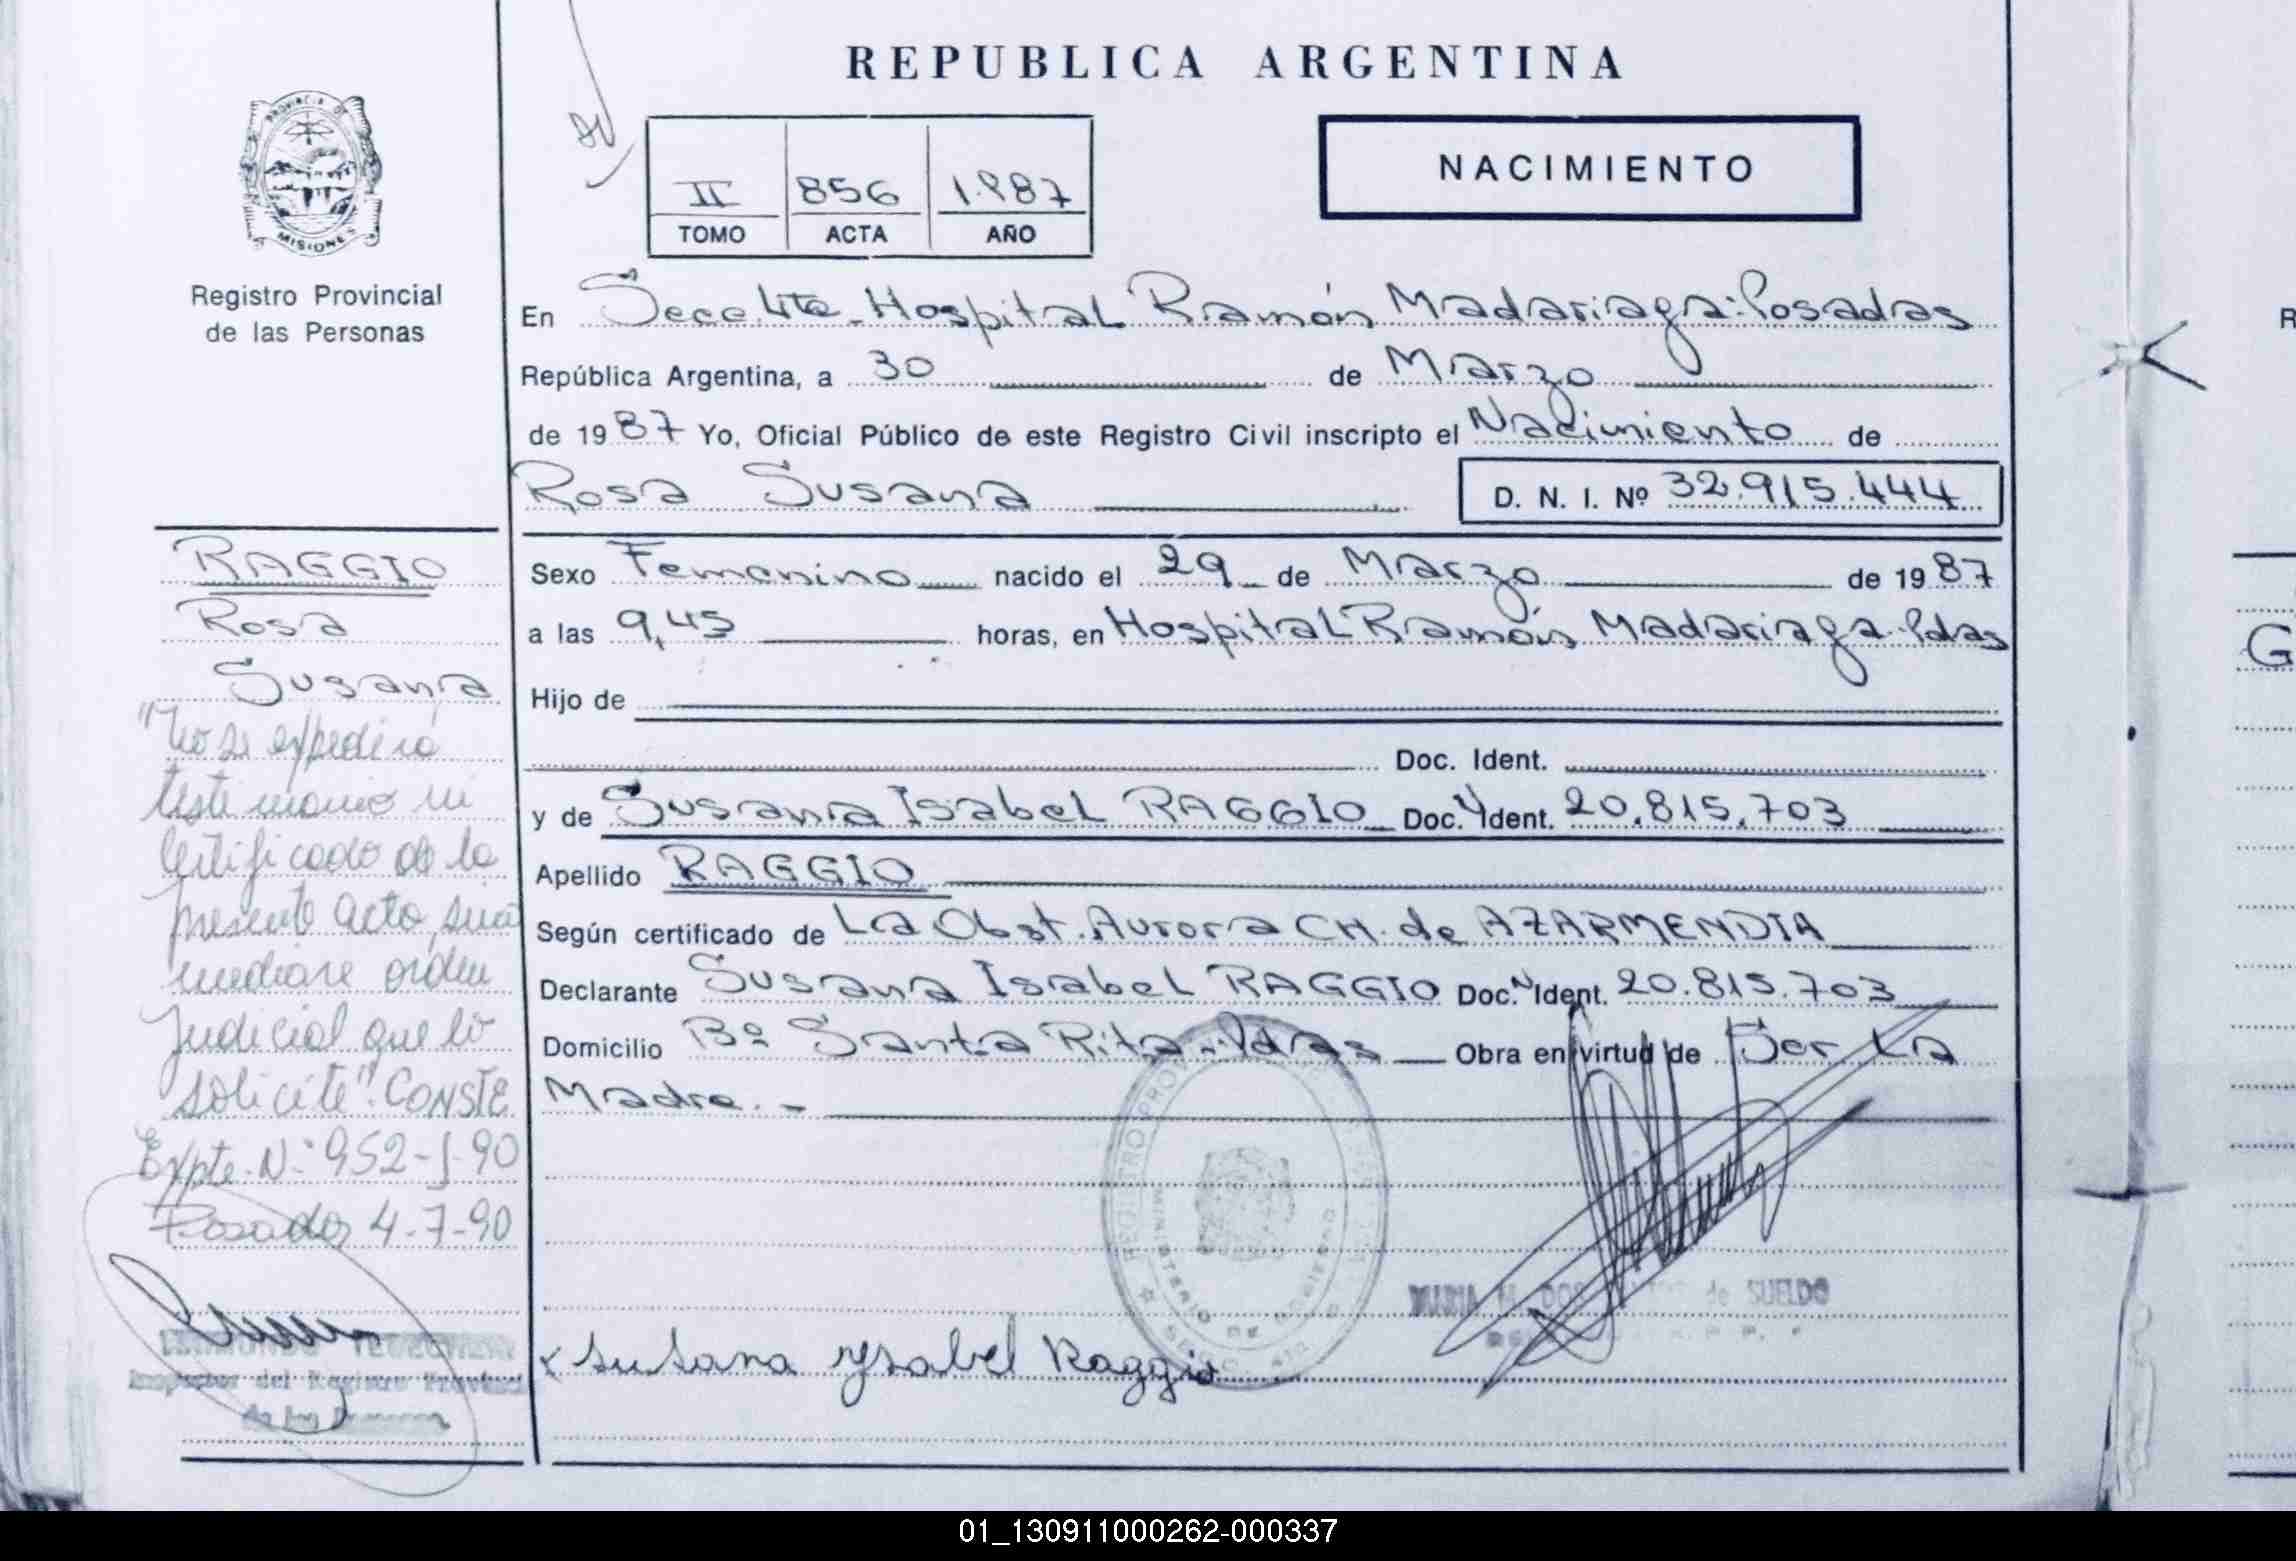 REPUBLICA ARGENTINA
PROVINCIA DE
MISIONES
Registro Provincial
de las Personas
NACIMIENTO
II 856 1.987
TOMO ACTA AÑO
En Secc. 4ta - Hospital Ramón Madariaga - Posadas
República Argentina, a 30 de Marzo
de 1987 Yo, Oficial Público de este Registro Civil inscripto el Nacimiento de
Rosa Susana D. N. I. Nº 32.915.444
Sexo Femenino nacido el 29 de Marzo de 1987
a las 9,45 horas, en Hospital Ramón Madariaga - Pdas
Hijo de
Doc. Ident.
y de Susana Isabel RAGGIO Doc. Ident. 20.815.703
Apellido RAGGIO
Según certificado de La Obst. Aurora CH. de AZARMENDIA
Declarante Susana Isabel RAGGIO Doc. N Ident. 20.815.703
Domicilio Bº Santa Rita - Pdas Obra en virtud de Ser La
Madre. -
RAGGIO
Rosa
Susana
"No se expedirá
testimonio ni
certificado de la
presente acta, sino
mediare orden
Judicial que lo
solicite". CONSTE
Expte. N: 952-J-90
Posadas 4-7-90
Inspector del Registro Provincial
de las Personas
REGISTRO PROV
MINISTERIO DE GOBIERNO
de SUELDO
x Susana Ysabel Raggio
R
G
01_130911000262-000337